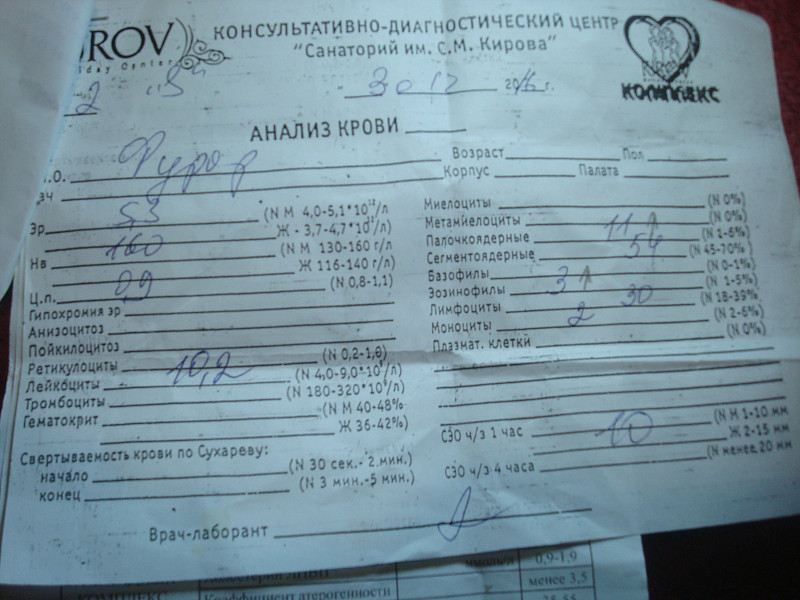 КОНСУЛЬТАТИВНО-ДИАГНОСТИЧЕСКИЙ ЦЕНТР
"Санаторий им. С.М. Кирова"
КОМПЛЕКС
2 "5" 30 12 2016 г.
АНАЛИЗ КРОВИ
.О. Фурор
Возраст Пол
Корпус Палата
ач
Эр 5,3 (N М 4,0-5,1*10¹²/л
Ж - 3,7-4,7*10¹²/л)
Нв 160 (N М 130-160 г/л
Ж 116-140 г/л)
Ц.п. 0,9 (N 0,8-1,1)
Гипохромия эр
Анизоцитоз
Пойкилоцитоз
Ретикулоциты (N 0,2-1,0)
Лейкоциты 10,2 (N 4,0-9,0*10⁹/л)
Тромбоциты (N 180-320*10⁹/л)
Гематокрит (N М 40-48%
Ж 36-42%)
Свертываемость крови по Сухареву:
начало (N 30 сек.- 2 мин.)
конец (N 3 мин.-5 мин.)
Миелоциты (N 0%)
Метамиелоциты (N 0%)
Палочкоядерные 11↑ (N 1-6%)
Сегментоядерные 54 (N 45-70% )
Базофилы (N 0-1%)
Эозинофилы 3↑ (N 1-5%)
Лимфоциты 30 (N 18-39%
Моноциты 2 (N 2-6%)
Плазмат. клетки (N 0%)
СЗО ч/з 1 час 10 (N М 1-10 мм
Ж 2-15 мм
СЗО ч/з 4 часа (N менее 20 мм
Врач-лаборант
ммоль/л 0,9-1,9
КОМПЛЕКС Коэффициент атерогенности менее 3,5